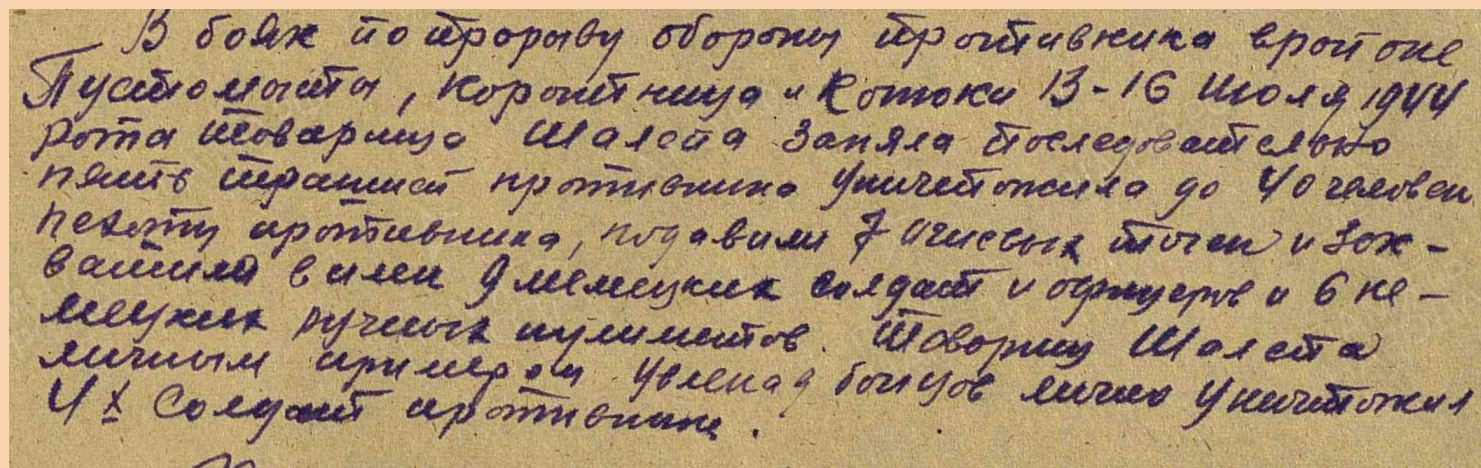 В боях по прорыву обороны противника в районе
Пустомыты, Коротница и Котоки 13-16 июля 1944
рота товарища Шалста заняла последовательно
пять траншей противника уничтожила до 40 человек
пехоты противника, подавили 7 огневых точек и зах-
ватила в плен 9 немецких солдат и офицеров и 6 не-
мецких ручных пулиметов. Товарищ Шалста
личным примером увлекая бойцов лично уничтожил
4х солдат противника.